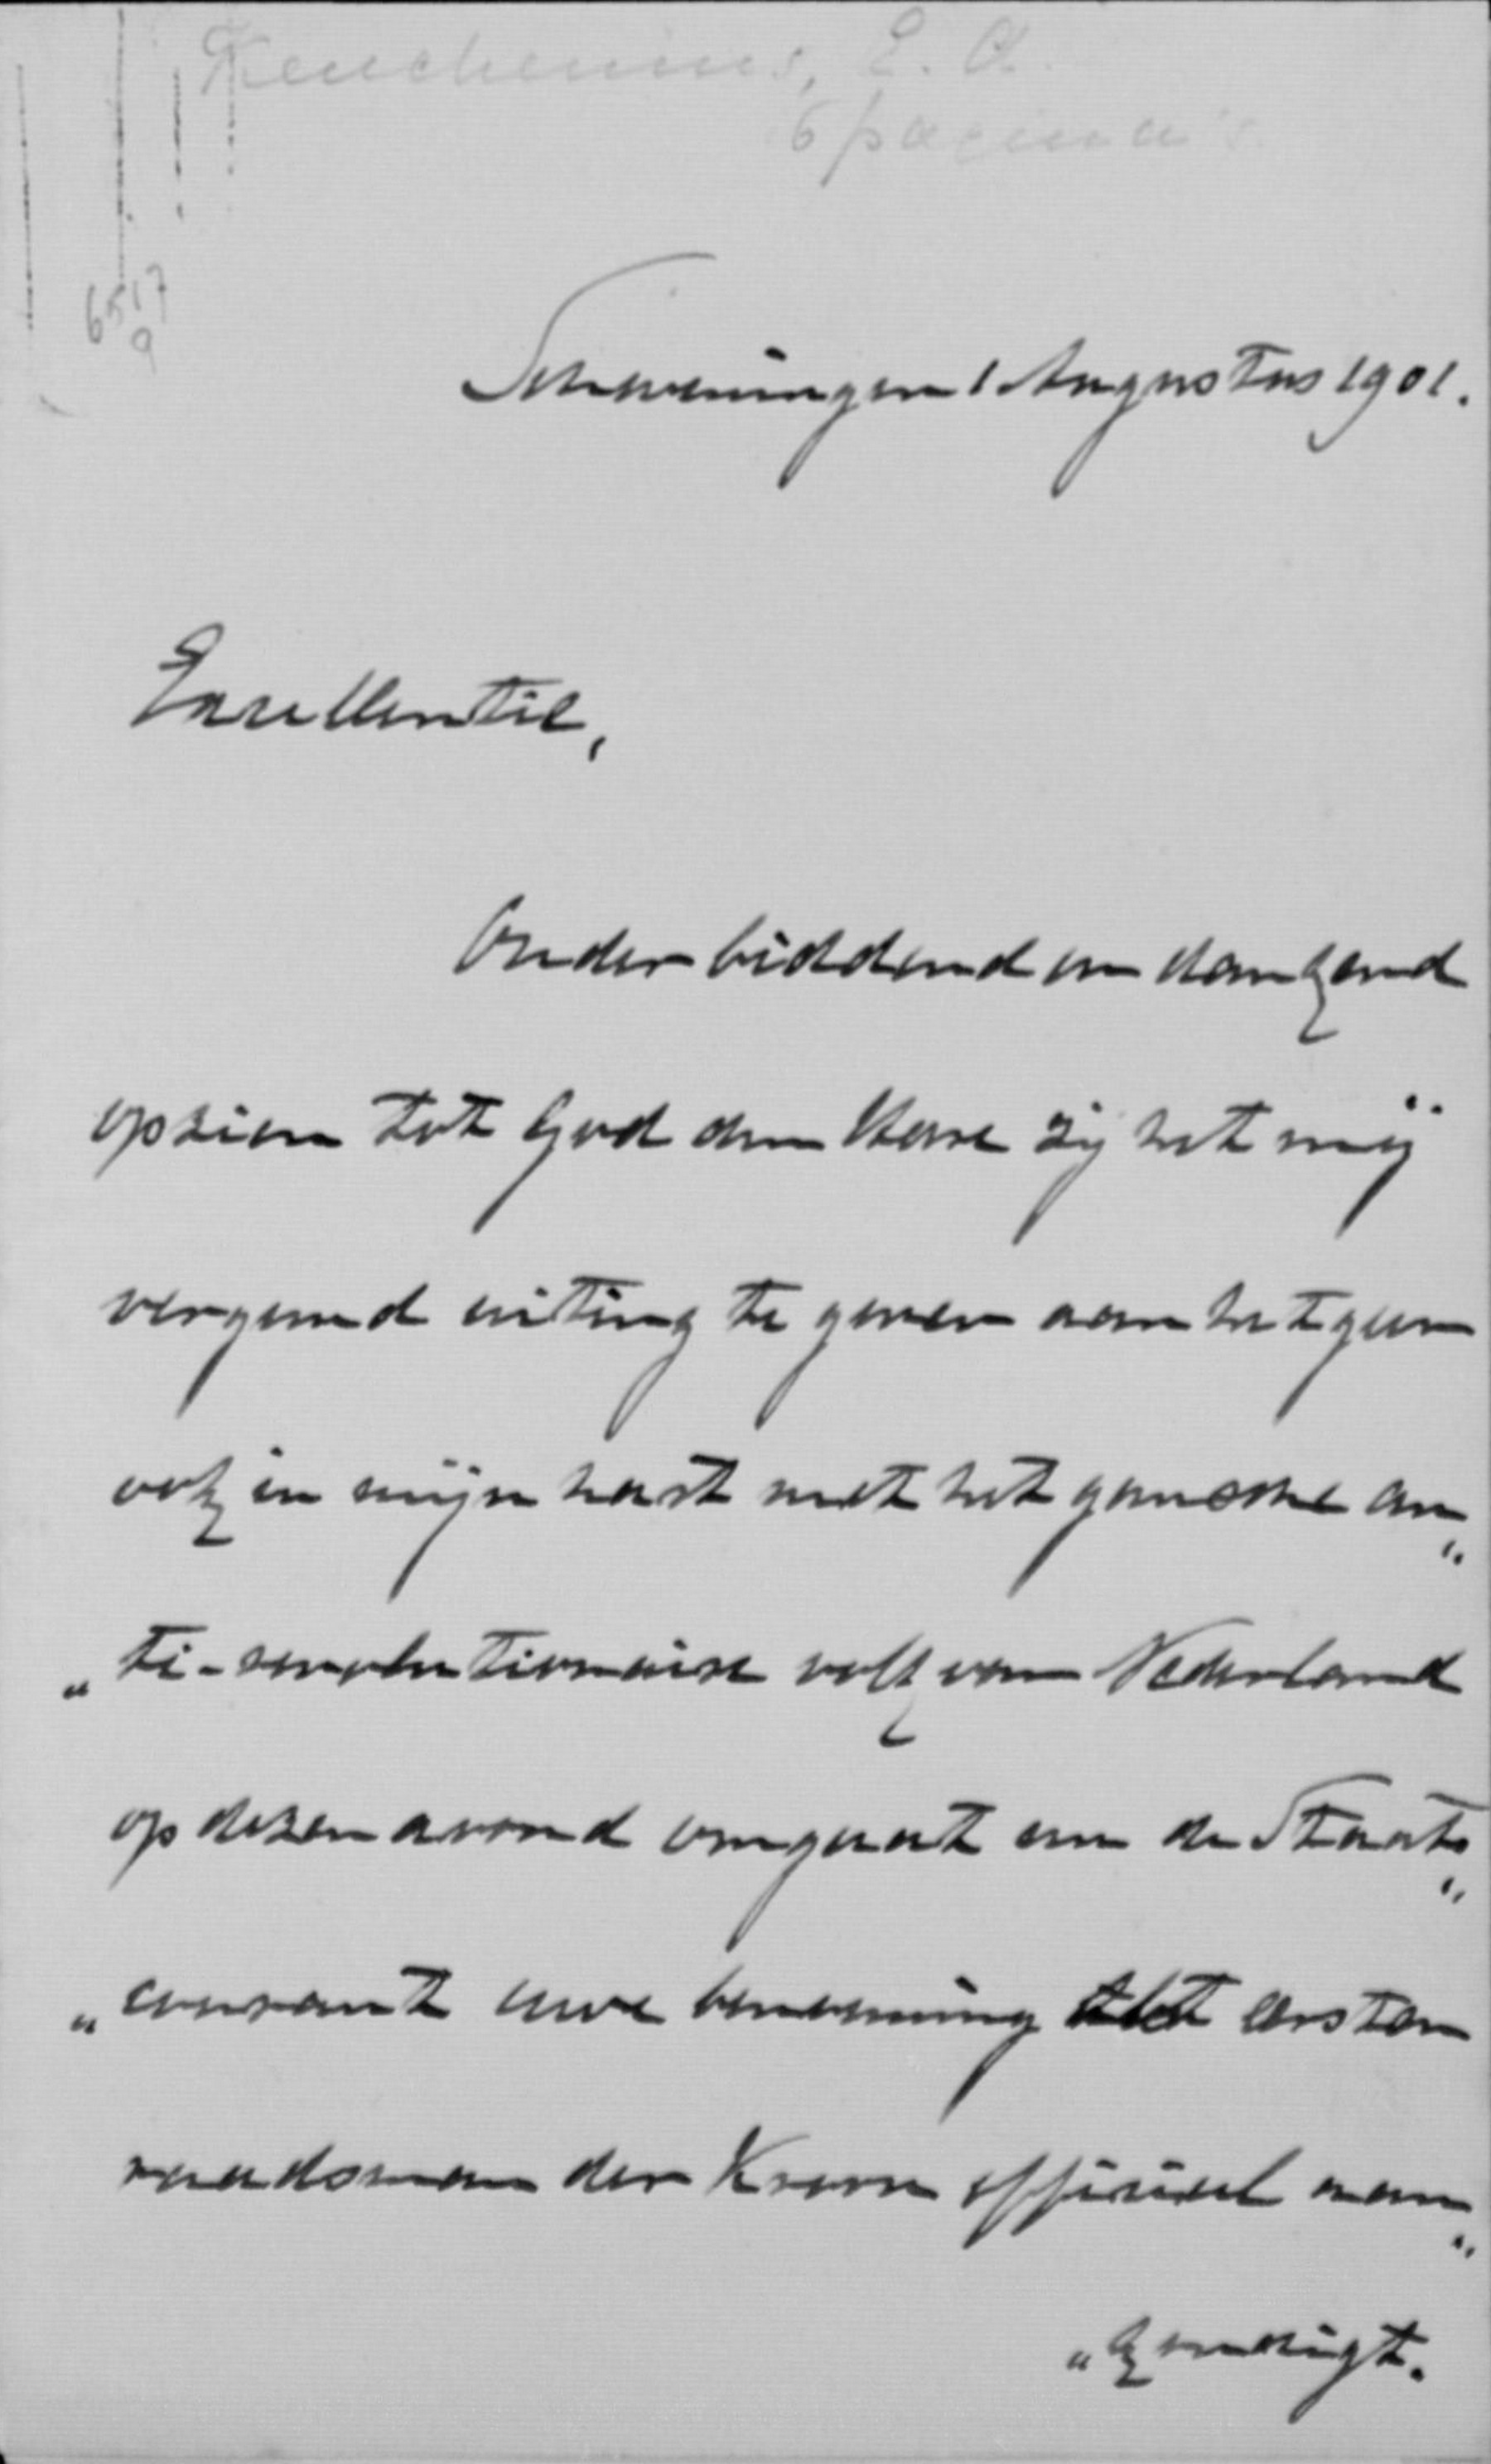 Keuchenius, L. C.
6 pagina's
6517
9
Scheveningen 1 Augustus 1901.
Excellentie,
Onder biddend en dankend
opzien tot God den Heere zij het mij
vergund uiting te geven aan hetgeen
ook in mijn hart met het gansche an„
„ti-revolutionaire volk van Nederland
op dezen avond omgaat nu de Staats„
„courant uwe benoeming tot eersten
raadsman der Kroon officieel aan„
„kondigt.